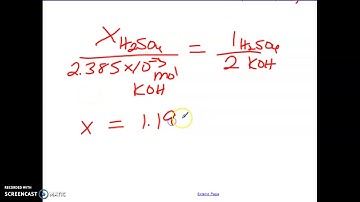 X H₂SO₄ / 2.385 x 10⁻³ mol KOH = 1 H₂SO₄ / 2 KOH
x = 1.19
RECORDED WITH
SCREENCAST MATIC